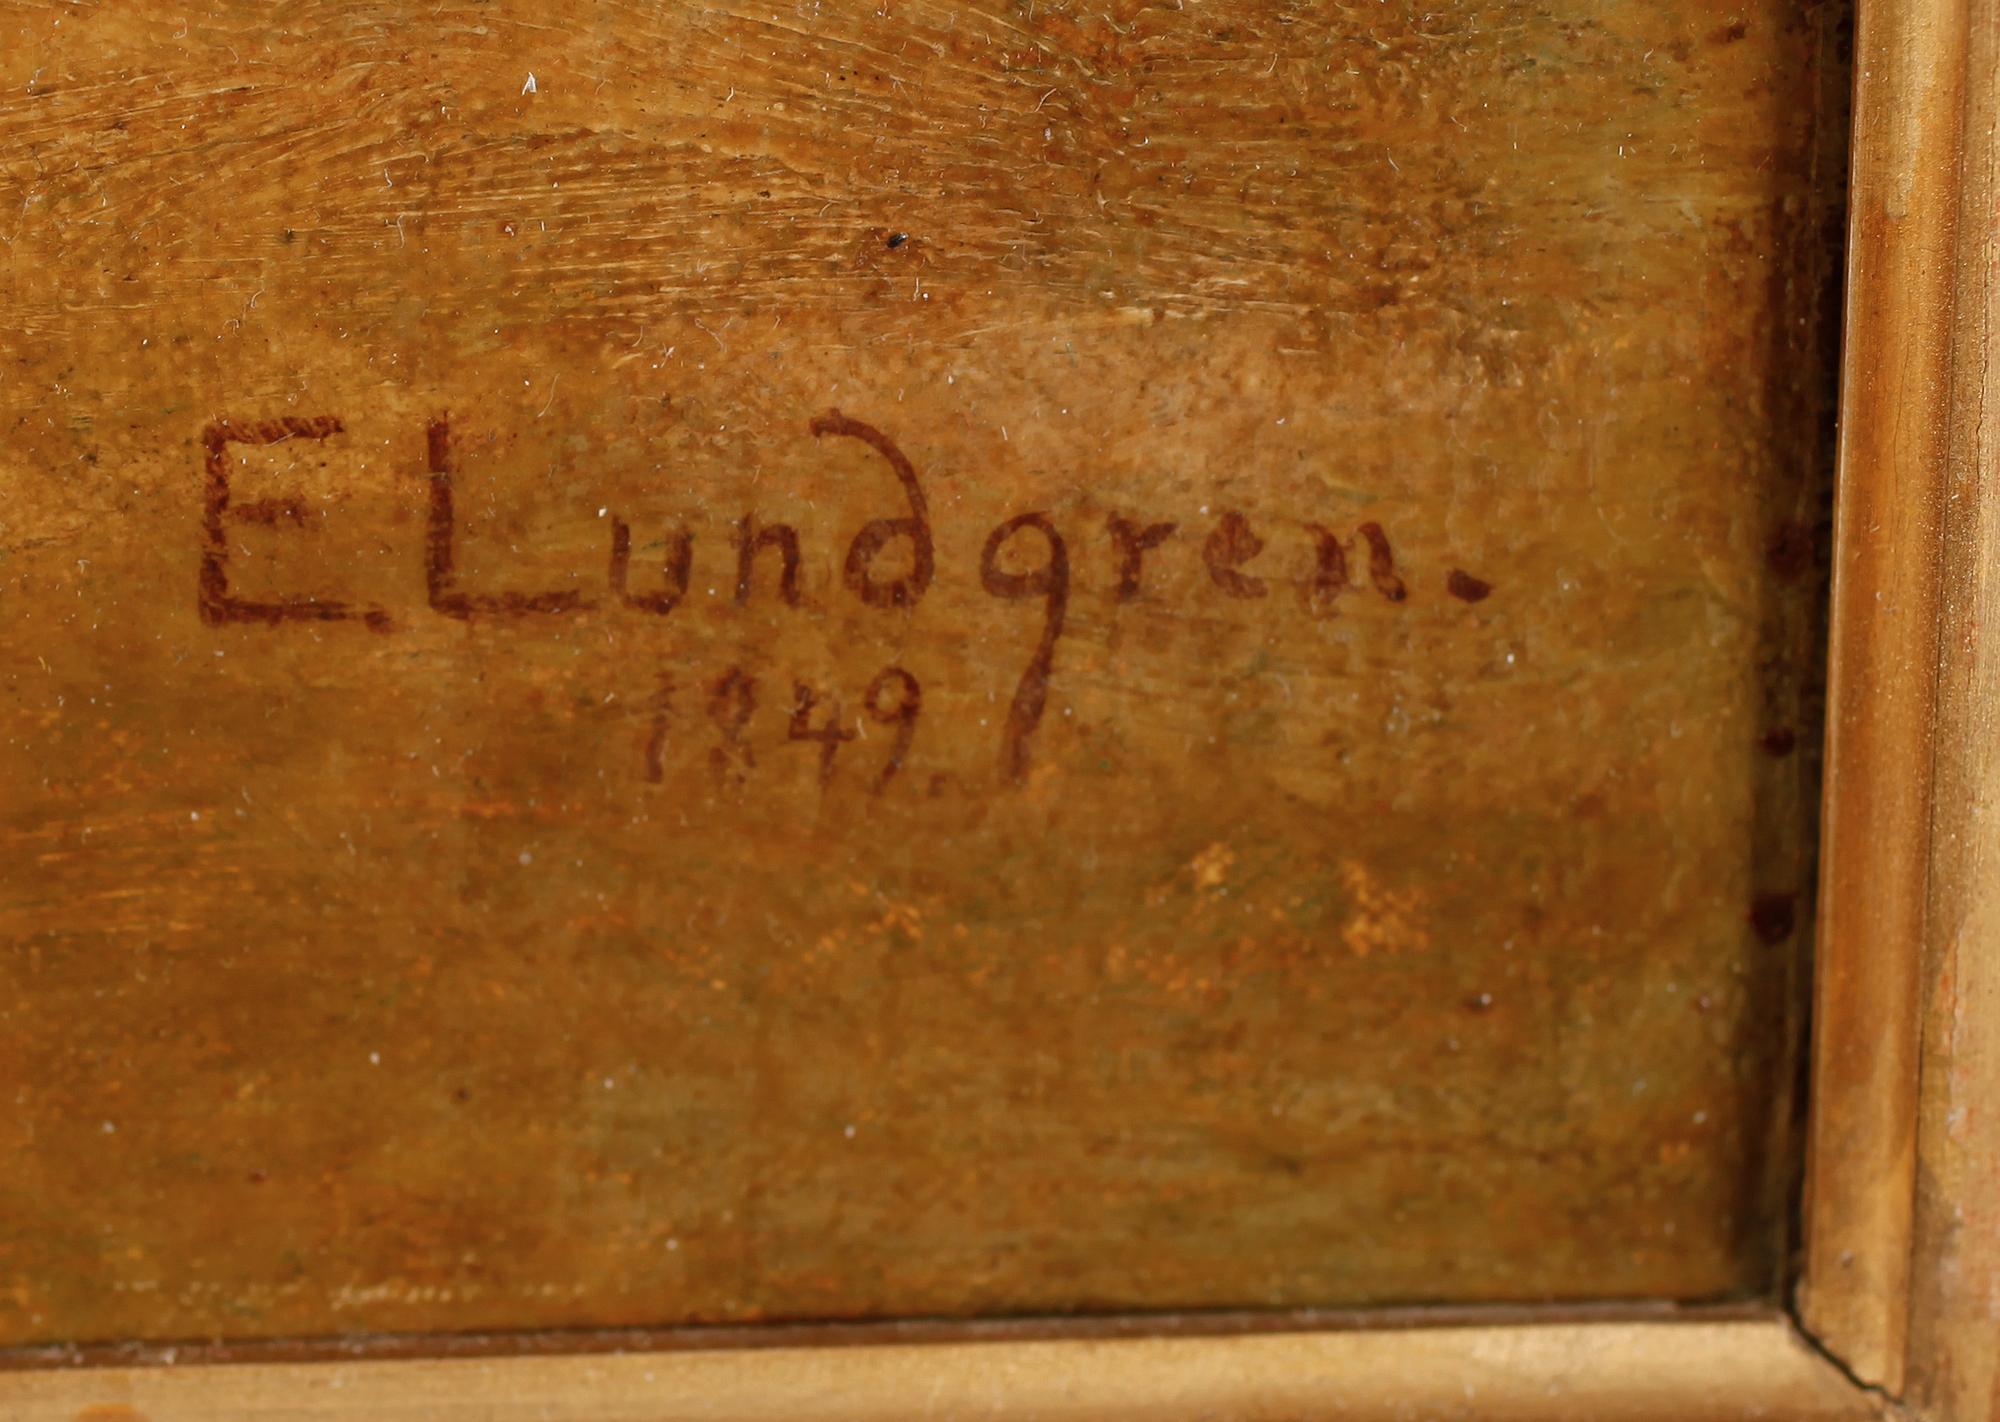 E Lundgren.
1849.